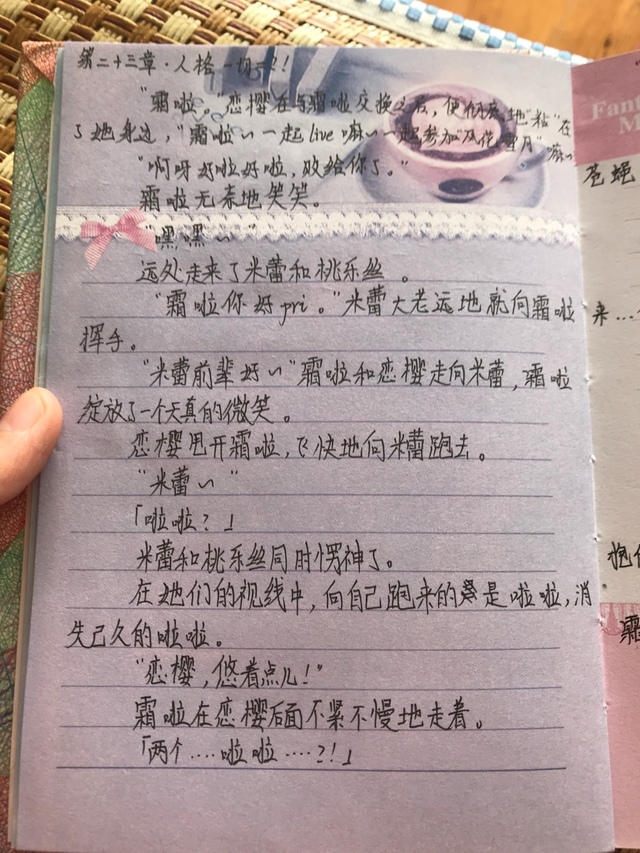 第二十三章·人格一切二?!
"霜啦。"恋樱在与霜啦交换之后,便彻底地"粘"在
了她身边,"霜啦~一起live嘛~一起参加"风花雪月"嘛~
"啊呀好啦好啦,败给你了。"
霜啦无奈地笑笑。
"嘿嘿~"
远处走来了米蕾和桃乐丝。
"霜啦你好pri。"米蕾大老远地就向霜啦
挥手。
"米蕾前辈好~"霜啦和恋樱走向米蕾,霜啦
绽放了一个天真的微笑。
恋樱甩开霜啦,飞快地向米蕾跑去。
"米蕾~"
「啦啦?」
米蕾和桃乐丝同时愣神了。
在她们的视线中,向自己跑来的是啦啦,消
失已久的啦啦。
"恋樱,悠着点儿!"
霜啦在恋樱后面不紧不慢地走着。
「两个....啦啦....?!」
Fan
M
苍蝇
来...
抱
霜